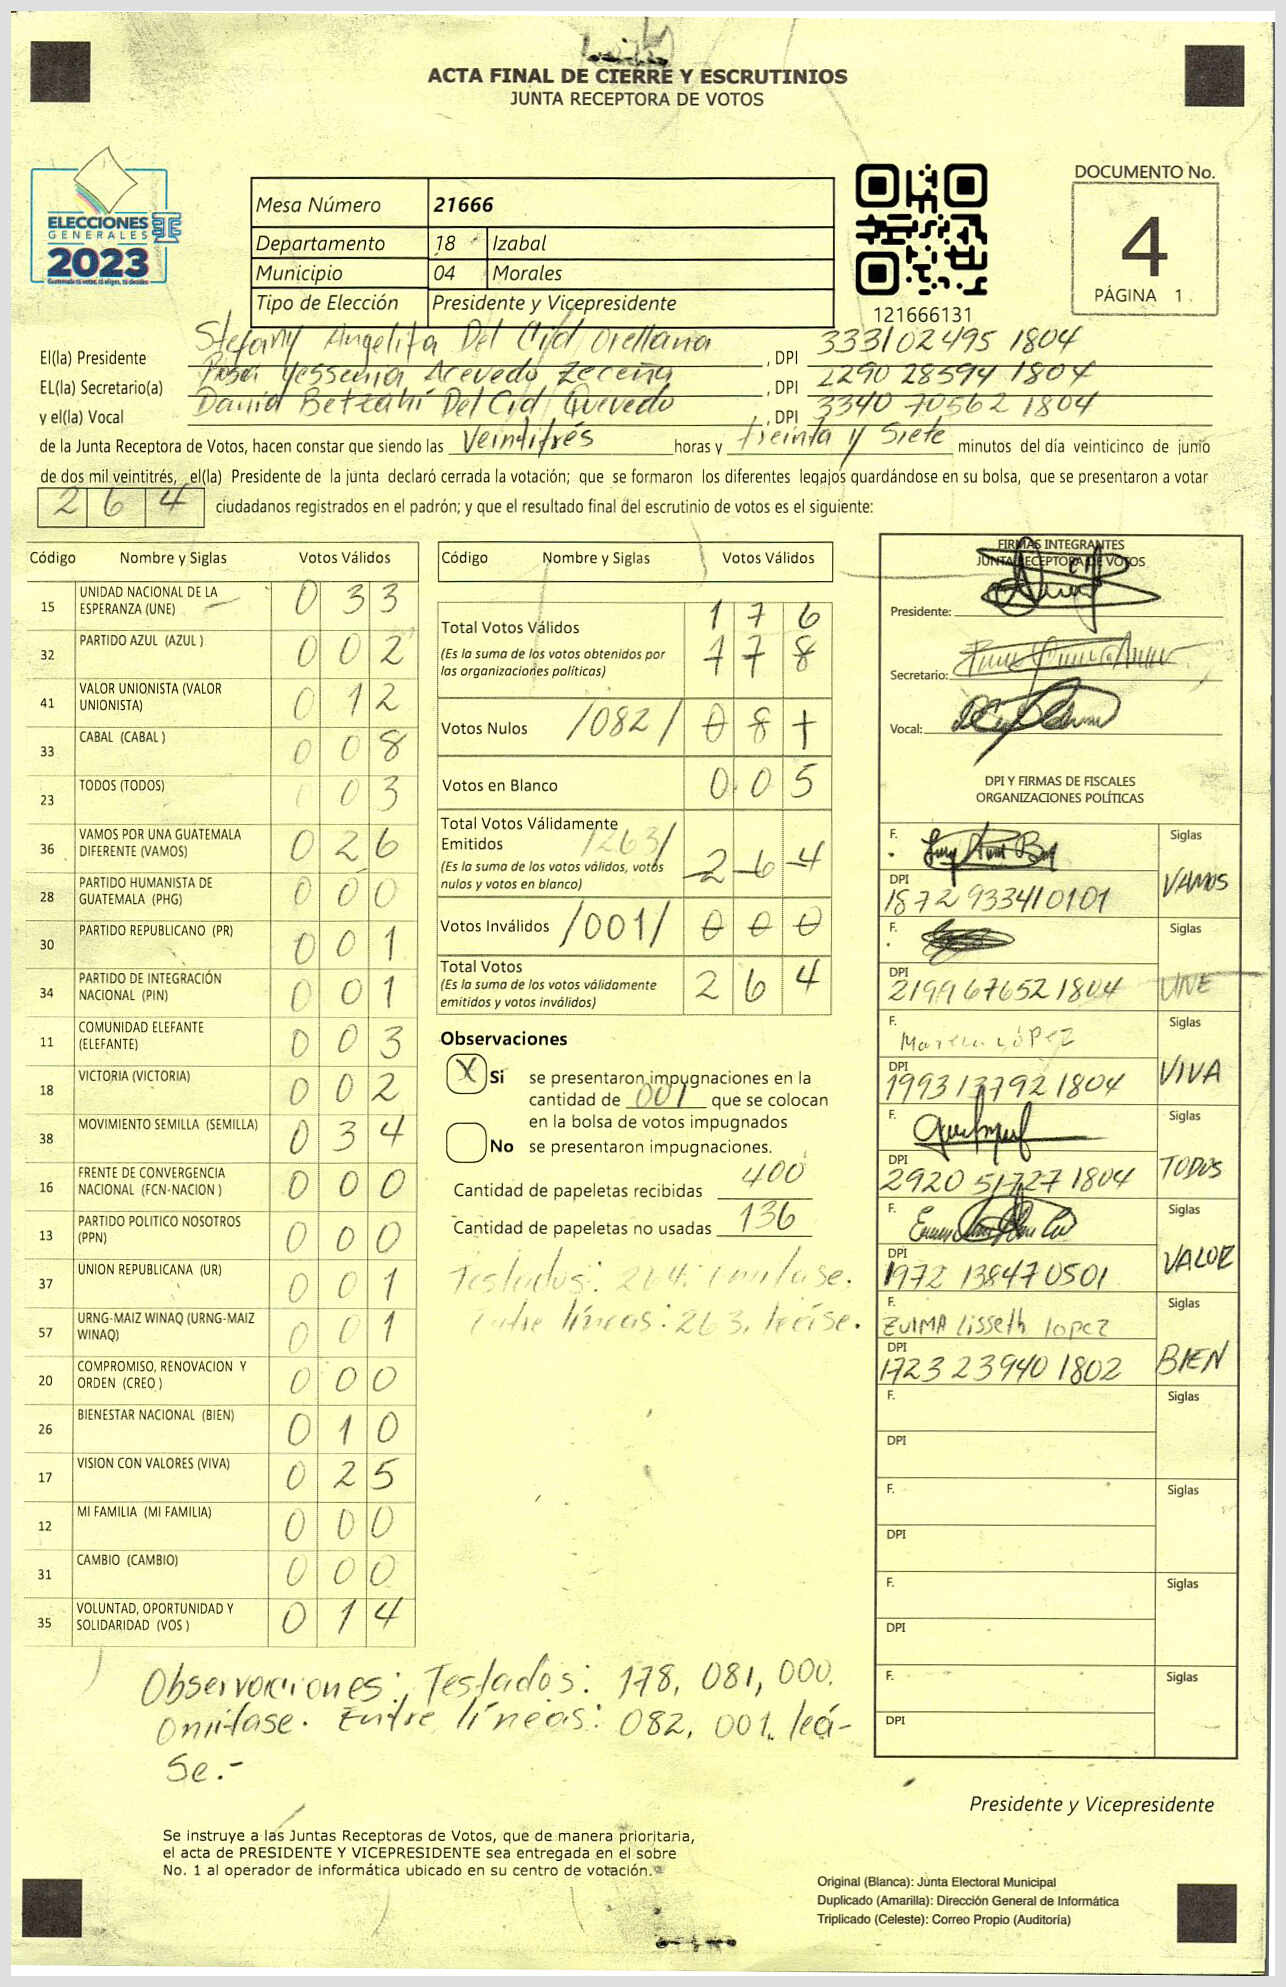 ACTA FINAL DE CIERRE Y ESCRUTINIOS
JUNTA RECEPTORA DE VOTOS
ELECCIONES
GENERALES
2023
Mesa Número 21666
Departamento 18 Izabal
Municipio 04 Morales
Tipo de Elección Presidente y Vicepresidente
121666131
DOCUMENTO No.
4
PÁGINA 1
El(la) Presidente Stefany Angelita Del Cid Orellana, DPI 333102495 1804
EL(la) Secretario(a) Yessenia Acevedo Zeceña, DPI 2290 28594 1804
y el(la) Vocal David Betzahí Del Cid Quevedo, DPI 3340 70562 1804
de la Junta Receptora de Votos, hacen constar que siendo las Veintitrés horas y treinta y Siete minutos del día veinticinco de junio
de dos mil veintitrés, el(la) Presidente de la junta declaró cerrada la votación; que se formaron los diferentes legajos guardándose en su bolsa, que se presentaron a votar
264 ciudadanos registrados en el padrón; y que el resultado final del escrutinio de votos es el siguiente:
Código Nombre y Siglas Votos Válidos
15 UNIDAD NACIONAL DE LA ESPERANZA (UNE) 0 3 3
32 PARTIDO AZUL (AZUL ) 0 0 2
41 VALOR UNIONISTA (VALOR UNIONISTA) 0 1 2
33 CABAL (CABAL ) 0 0 8
23 TODOS (TODOS) 0 0 3
36 VAMOS POR UNA GUATEMALA DIFERENTE (VAMOS) 0 2 6
28 PARTIDO HUMANISTA DE GUATEMALA (PHG) 0 0 0
30 PARTIDO REPUBLICANO (PR) 0 0 1
34 PARTIDO DE INTEGRACIÓN NACIONAL (PIN) 0 0 1
11 COMUNIDAD ELEFANTE (ELEFANTE) 0 0 3
18 VICTORIA (VICTORIA) 0 0 2
38 MOVIMIENTO SEMILLA (SEMILLA) 0 3 4
16 FRENTE DE CONVERGENCIA NACIONAL (FCN-NACION ) 0 0 0
13 PARTIDO POLITICO NOSOTROS (PPN) 0 0 0
37 UNION REPUBLICANA (UR) 0 0 1
57 URNG-MAIZ WINAQ (URNG-MAIZ WINAQ) 0 0 1
20 COMPROMISO, RENOVACION Y ORDEN (CREO ) 0 0 0
26 BIENESTAR NACIONAL (BIEN) 0 1 0
17 VISION CON VALORES (VIVA) 0 2 5
12 MI FAMILIA (MI FAMILIA) 0 0 0
31 CAMBIO (CAMBIO) 0 0 0
35 VOLUNTAD, OPORTUNIDAD Y SOLIDARIDAD (VOS ) 0 1 4
Código Nombre y Siglas Votos Válidos
Total Votos Válidos 1 7 6
(Es la suma de los votos obtenidos por las organizaciones políticas) 1 7 8
Votos Nulos /082/ 0 8 1
Votos en Blanco 0 0 5
Total Votos Válidamente Emitidos /263/
(Es la suma de los votos válidos, votos nulos y votos en blanco) 2 6 4
Votos Inválidos /001/ 0 0 0
Total Votos
(Es la suma de los votos válidamente emitidos y votos inválidos) 2 6 4
Observaciones
X Si se presentaron impugnaciones en la
cantidad de 001 que se colocan
en la bolsa de votos impugnados
No se presentaron impugnaciones.
Cantidad de papeletas recibidas 400
Cantidad de papeletas no usadas 136
Testados: 264. Omitase.
Entre líneas: 263, léase.
FIRMAS INTEGRANTES
JUNTA RECEPTORA DE VOTOS
Presidente:
Secretario:
Vocal:
DPI Y FIRMAS DE FISCALES
ORGANIZACIONES POLÍTICAS
F. Siglas VAMOS
DPI 1872 93341 0101
F. Siglas UNE
DPI 2199 67652 1804
F. López Siglas VIVA
DPI 1993 13792 1804
F. Siglas TODOS
DPI 2920 51727 1804
F. Siglas VALOR
DPI 1972 13847 0501
F. ZUlMA Lisseth lopez Siglas BIEN
DPI 1723 23940 1802
F. Siglas
DPI
F. Siglas
DPI
F. Siglas
DPI
F. Siglas
DPI
Observaciones: Testados: 178, 081, 000.
Omitase. Entre líneas: 082, 001. leá-
se.-
Presidente y Vicepresidente
Se instruye a las Juntas Receptoras de Votos, que de manera prioritaria,
el acta de PRESIDENTE Y VICEPRESIDENTE sea entregada en el sobre
No. 1 al operador de informática ubicado en su centro de votación.
Original (Blanca): Junta Electoral Municipal
Duplicado (Amarilla): Dirección General de Informática
Triplicado (Celeste): Correo Propio (Auditoría)